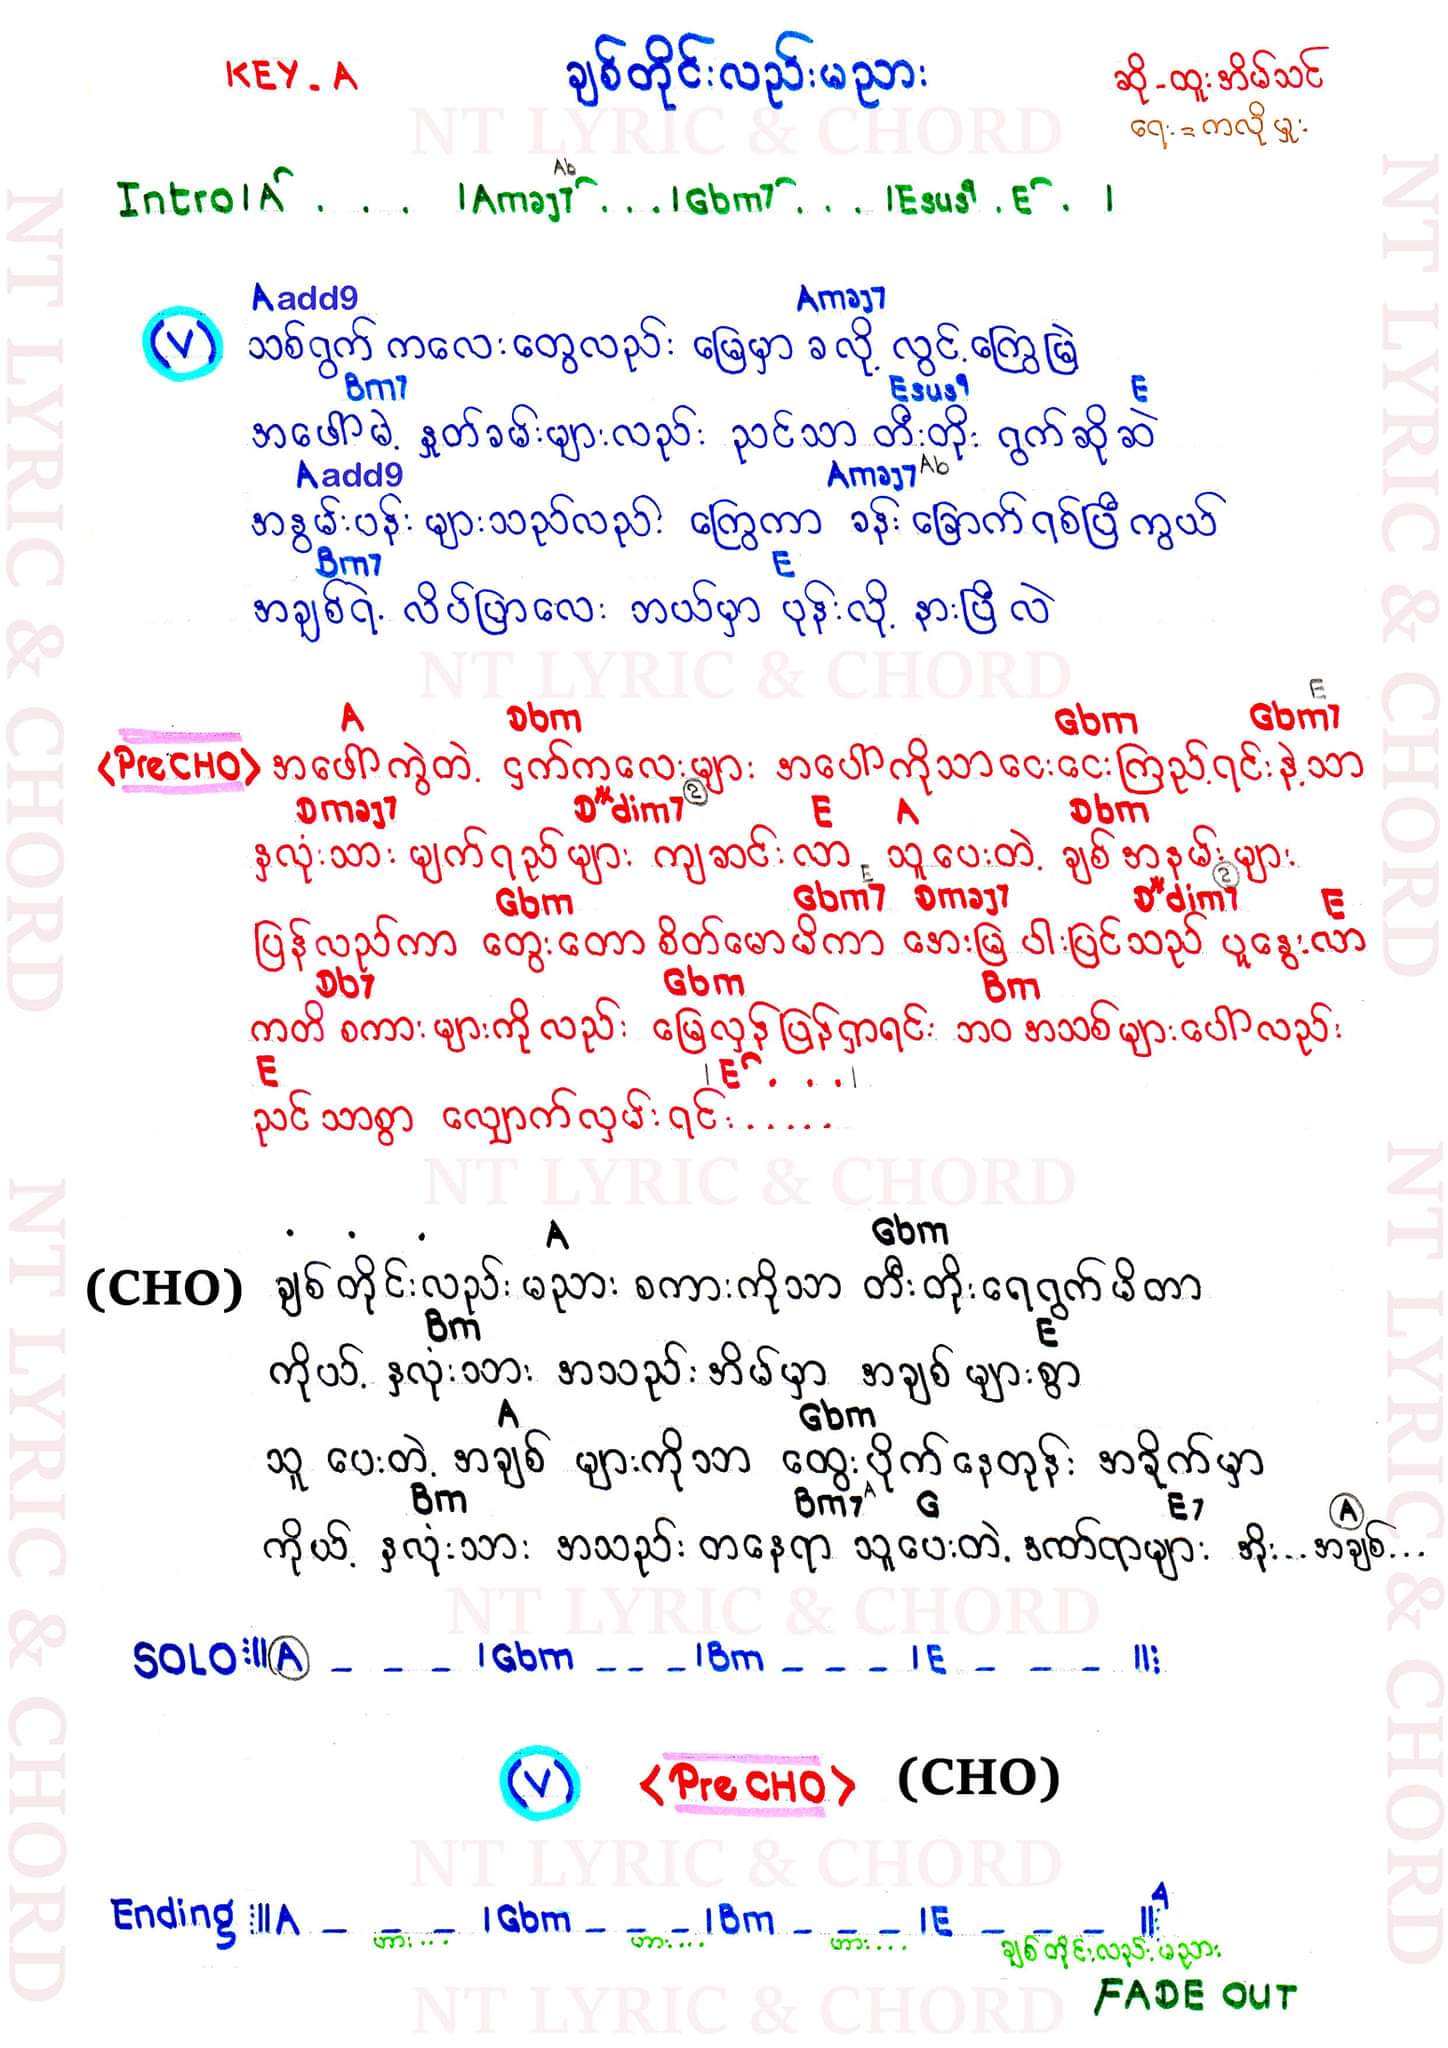 KEY. A
ချစ်တိုင်းလည်းမညား
ဆို - ထူးအိမ်သင်
ရေး = ကလိုမှူး
NT LYRIC & CHORD
Ab
Intro | A . . . | Amaj7 . . . | Gbm7 . . . | Esus9 . E . |
Aadd9 Amaj7
(V) သစ်ရွက် ကလေးတွေလည်း မြေမှာ ခလို့ လွင့်ကြွေမြဲ
Bm7 Esus9 E
အဖော်မဲ့ နှုတ်ခမ်းများလည်း ညင်သာ တီးတိုး ရွက်ဆိုဆဲ
Aadd9 Amaj7 Ab
အနွမ်းပန်း များသည်လည်း ကြွေကာ ခန်းခြောက်ရစ်ပြီကွယ်
Bm7 E
အချစ်ရဲ့ လိပ်ပြာလေး ဘယ်မှာ ပုန်းလို့ နားပြီလဲ
NT LYRIC & CHORD
A Dbm Gbm Gbm7 E
<Pre CHO> အဖော်ကွဲတဲ့ ငှက်ကလေးများ အပေါ်ကိုသာငေးငေးကြည့်ရင်းနဲ့သာ
Dmaj7 D#dim7 2 E A Dbm
နှလုံးသား မျက်ရည်များ ကျဆင်းလာ သူပေးတဲ့ ချစ်အနမ်းများ
Gbm Gbm7 E Dmaj7 D#dim7 2 E
ပြန်လည်ကာ တွေးတော စိတ်မောမိကာ အေးမြ ပါးပြင်သည် ပူနွေးလာ
Db7 Gbm Bm
ကတိ စကားများကိုလည်း မြေလှန်ပြန်ရှာရင်း ဘဝ အသစ်များပေါ်လည်း
E | E . . . |
ညင်သာစွာ လျှောက်လှမ်းရင်း......
NT LYRIC & CHORD
. . . A Gbm
(CHO) ချစ်တိုင်းလည်းမညား စကားကိုသာ တီးတိုးရေရွက်မိတာ
Bm E
ကိုယ့် နှလုံးသား အသည်းအိမ်မှာ အချစ်များစွာ
A Gbm
သူ ပေးတဲ့ အချစ် များကိုသာ ထွေးပိုက်နေတုန်း အခိုက်မှာ
Bm Bm7 A G E7 A
ကိုယ့် နှလုံးသား အသည်း တနေရာ သူပေးတဲ့ ဒဏ်ရာများ အိုး... အချစ်...
NT LYRIC & CHORD
SOLO :|| A _ _ _ | Gbm _ _ _ | Bm _ _ _ | E _ _ _ ||:
(V) <Pre CHO> (CHO)
NT LYRIC & CHORD
Ending :|| A _ _ _ | Gbm _ _ _ | Bm _ _ _ | E _ _ _ ||: A
ဟား.... ဟား.... ဟား... ချစ်တိုင်းလည်းမညား
FADE OUT
NT LYRIC & CHORD
NT LYRIC & CHORD
NT LYRIC & CHORD
NT LYRIC & CHORD
NT LYRIC & CHORD